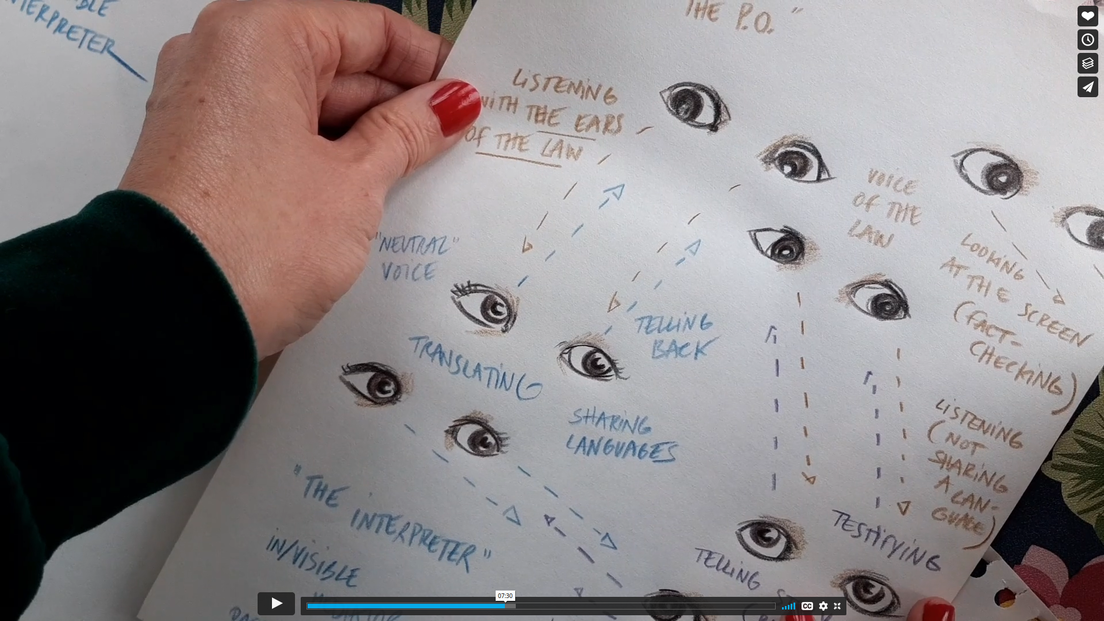 INTERPRETER
THE P.O."
LISTENING
WITH THE EARS
OF THE LAW
VOICE
OF THE
LAW
"NEUTRAL"
VOICE
LOOKING
AT THE SCREEN
(FACT-
CHECKING)
TELLING
BACK
TRANSLATING
SHARING
LANGUAGES
LISTENING
(NOT
SHARING
A LAN-
GUAGE)
"THE INTERPRETER"
IN/VISIBLE
TESTIFYING
TELLING
07:30
CC